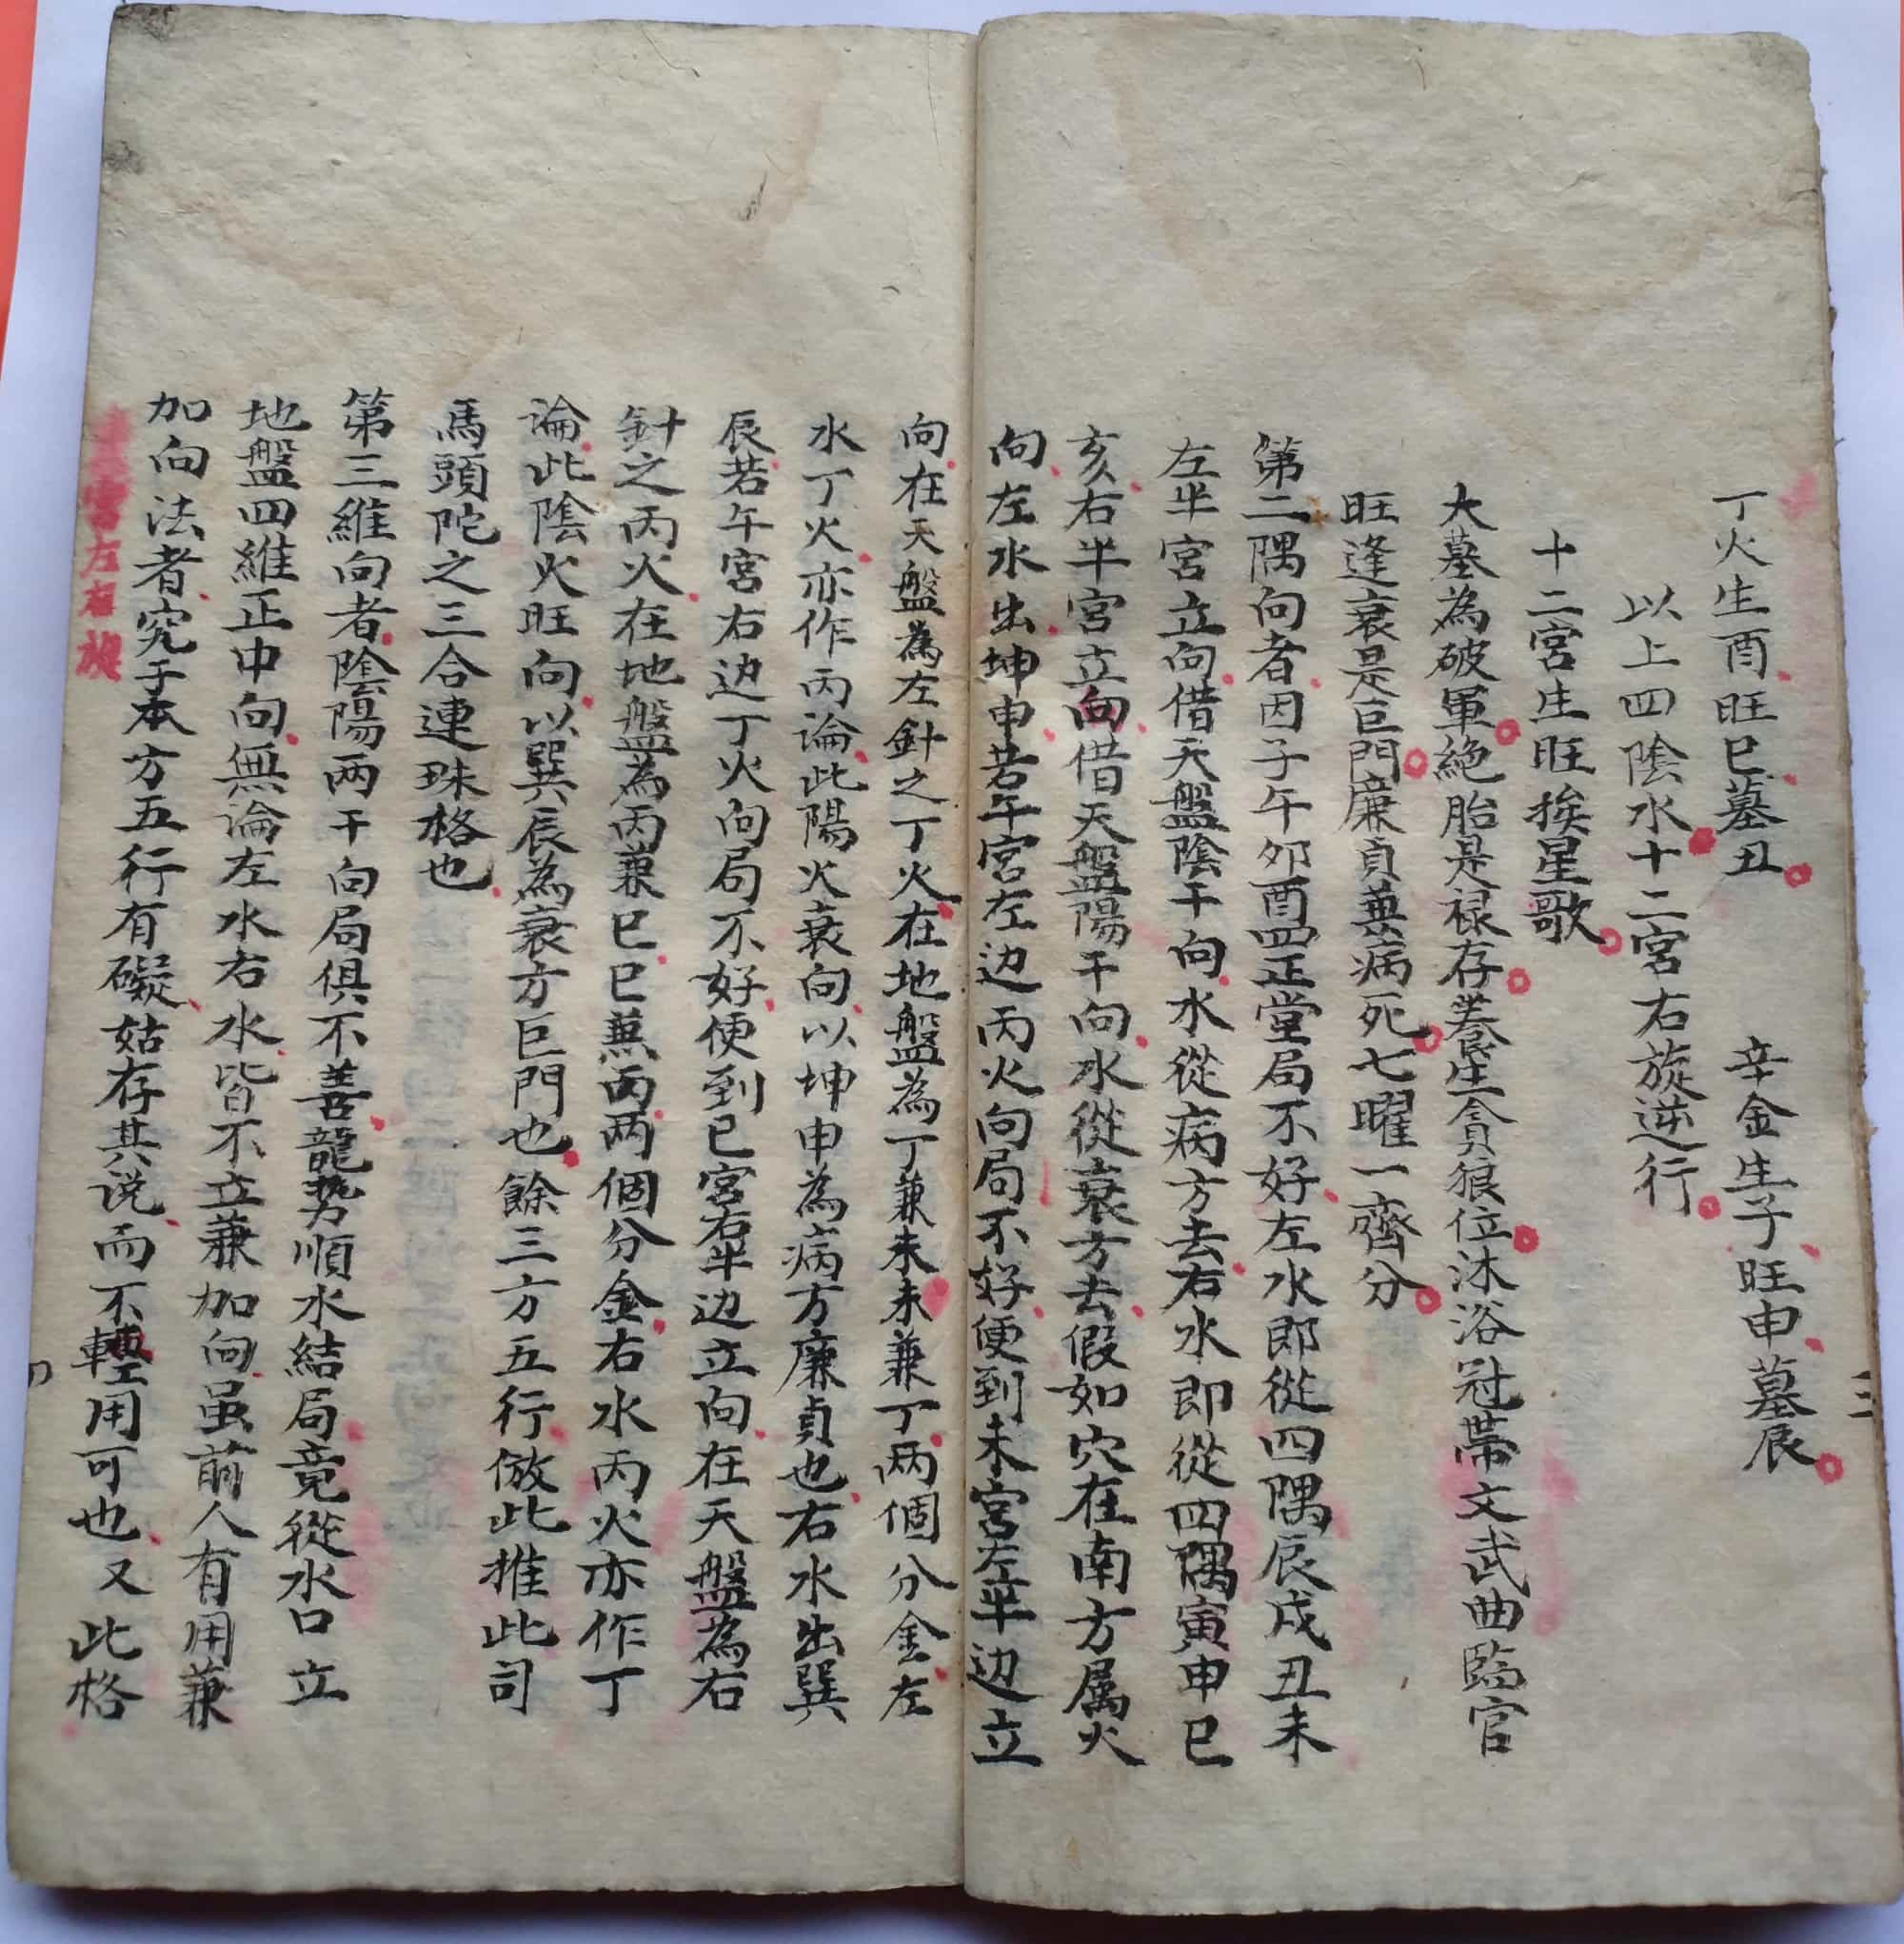 三
丁火生酉旺巳墓丑 辛金生子旺申墓辰
以上四陰水十二宮右旋逆行
十二宮生旺挨星歌
大墓為破軍絶胎是禄存養生貪狼位沐浴冠帶文武曲臨官
旺逢衰是巨門廉貞兼病死七曜一齊分
第二隅向者因子午夘酉四正堂局不好左水即從四隅辰戌丑未
左半宮立向借天盤陰干向水從病方去右水即從四隅寅申巳
亥右半宮立向借天盤陽干向水從衰方去假如穴在南方属火
向左水出坤申若午宮左边丙火向局不好便到未宮左半边立
向在天盤為左針之丁火在地盤為丁兼未未兼丁两個分金左
水丁火亦作丙論此陽火衰向以坤申為病方廉貞也右水出巽
辰若午宮右边丁火向局不好便到巳宮右半边立向在天盤為右
針之丙火在地盤為丙兼巳巳兼丙两個分金右水丙火亦作丁
論此陰火旺向以巽辰為衰方巨門也餘三方五行倣此推此司
馬頭陀之三合連珠格也
第三維向者陰陽两干向局俱不善龍势順水結局竟從水口立
地盤四維正中向無論左水右水皆不立兼加向虽前人有用兼
加向法者究于本方五行有礙姑存其说而不輕用可也又此格
宮左右旋